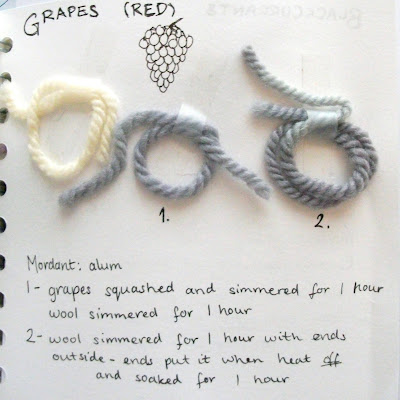 GRAPES (RED)
1.
2.
Mordant: alum
1- grapes squashed and simmered for 1 hour
wool simmered for 1 hour
2- wool simmered for 1 hour with ends
outside - ends put it when heat off
and soaked for 1 hour